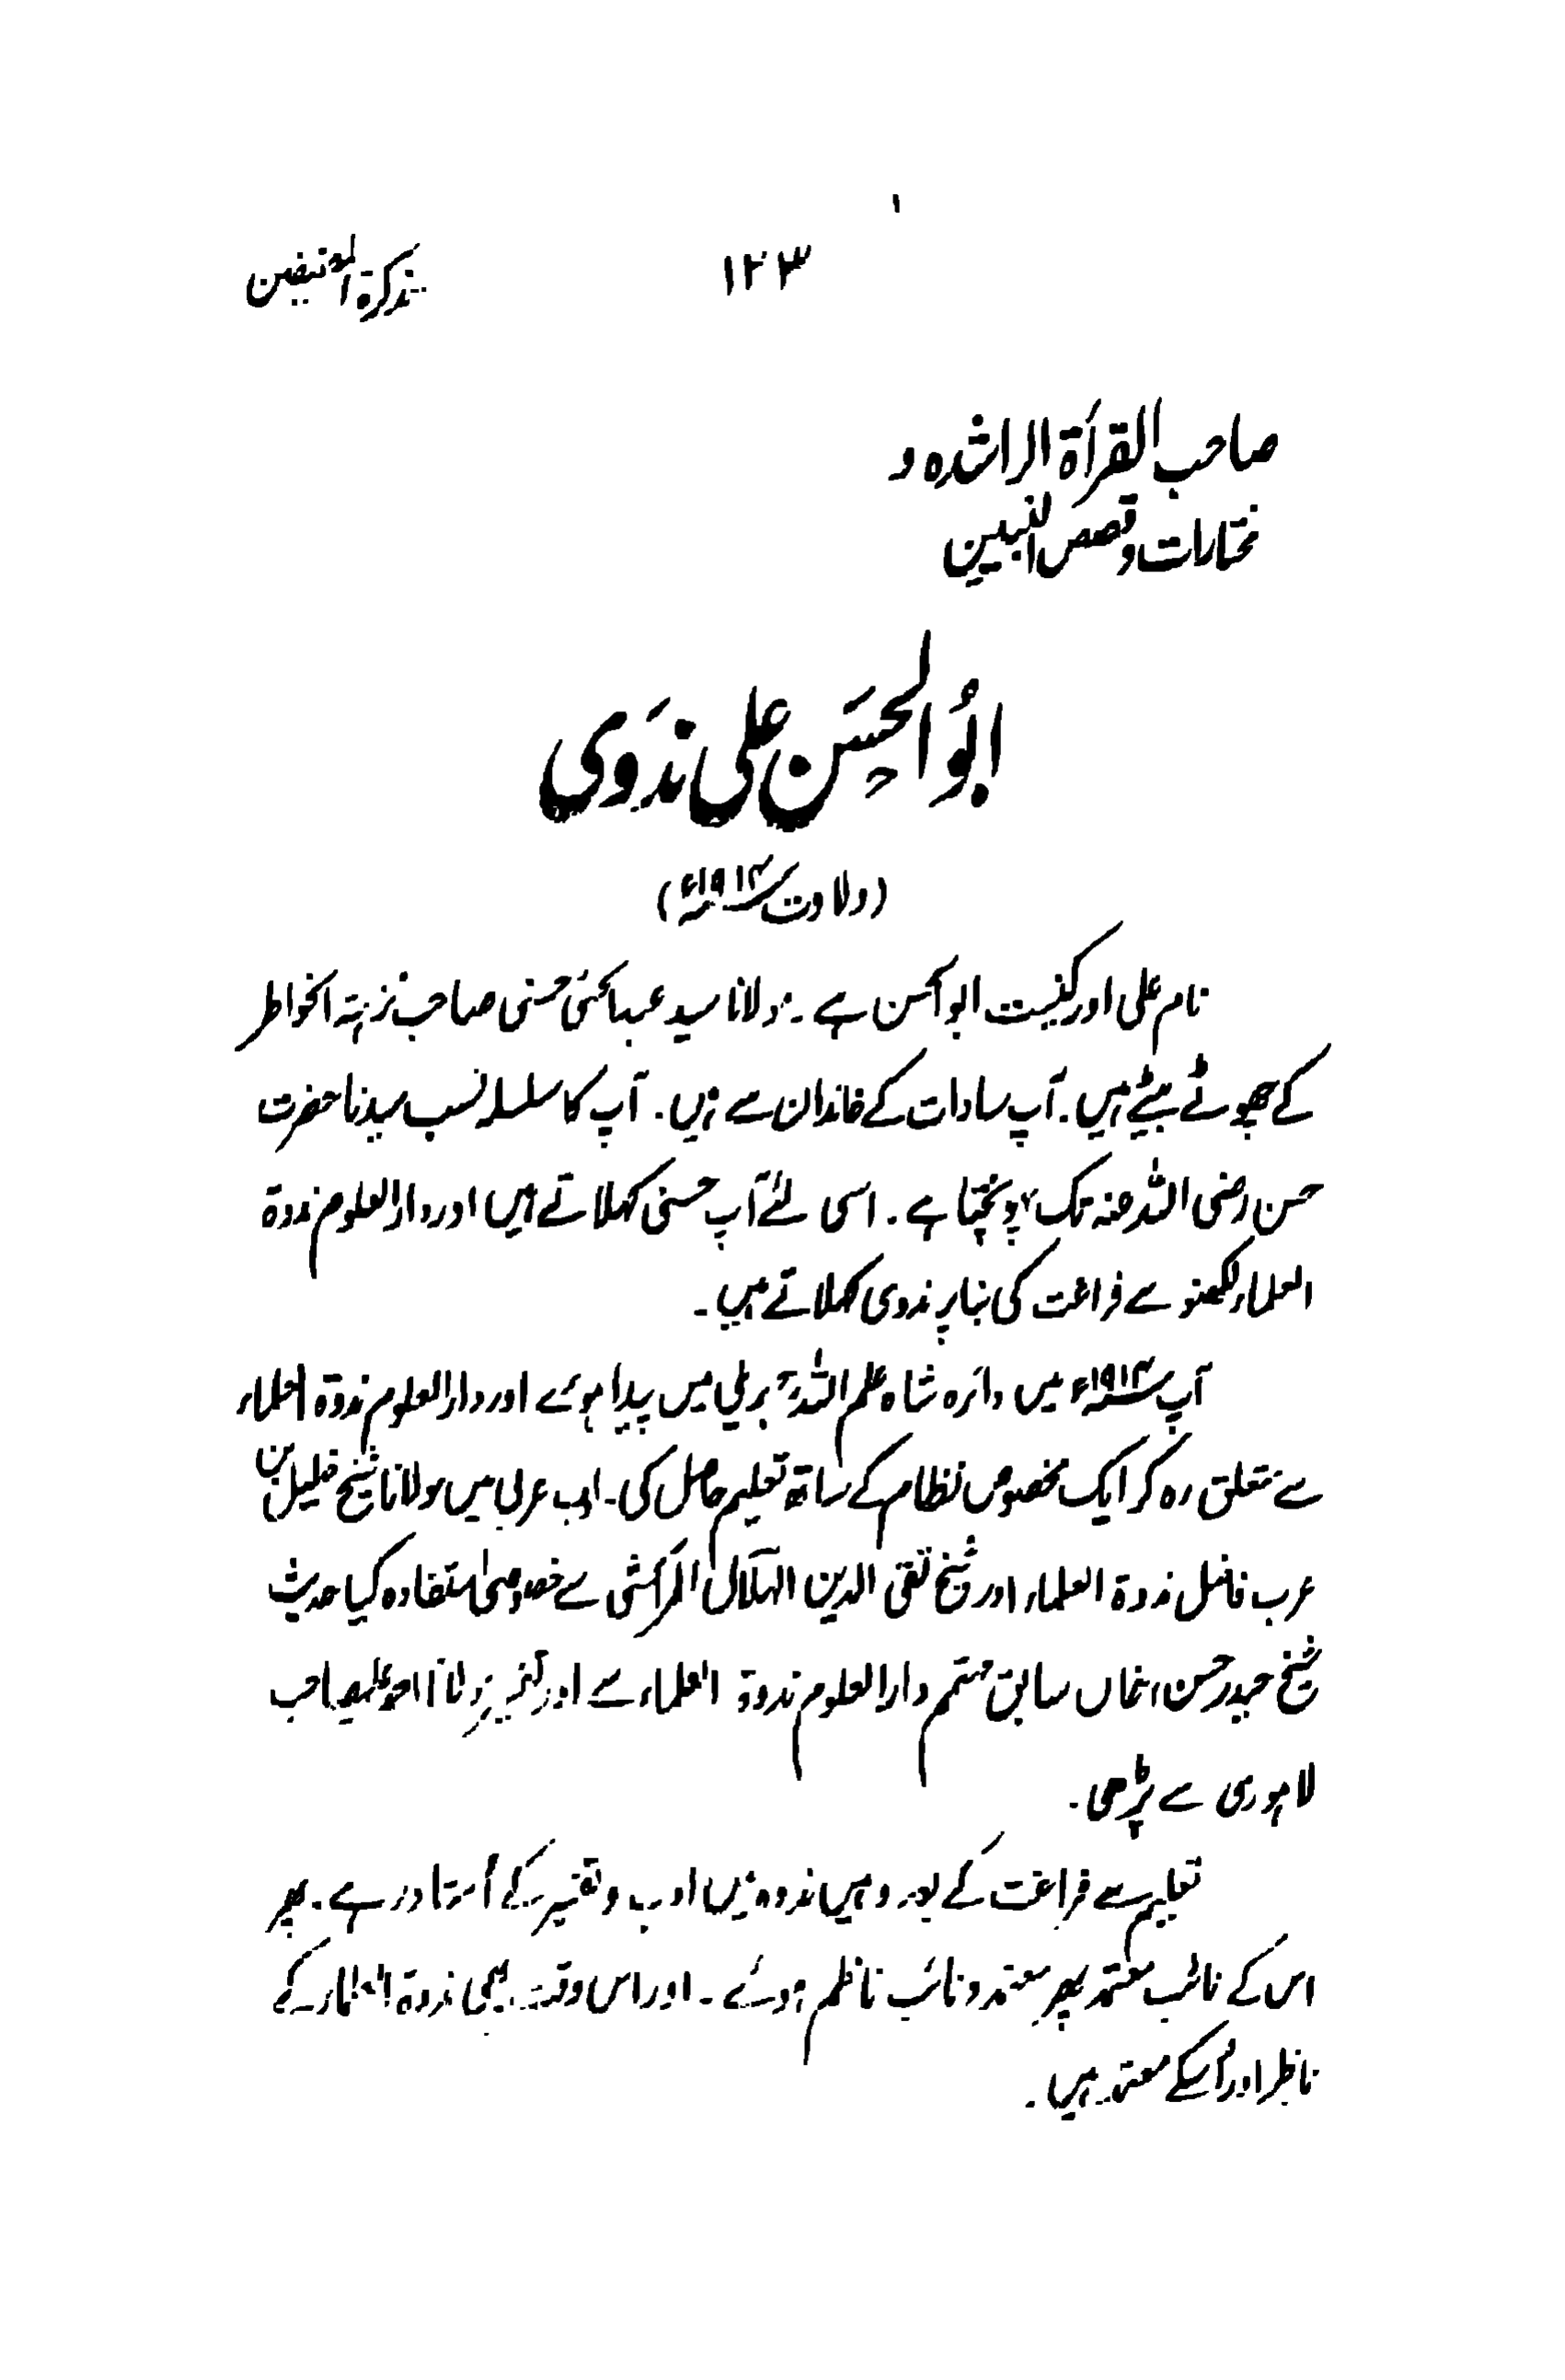 ۱۲۳ تذکرۃ المصنفین
صاحب القرأۃ الراشدہ و
مختارات و قصص النبیین
ابُو الحسَن علی ندَوی
(ولادت ۱۹۱۴ء)
نام علی اور کنیت ابو الحسن ہے۔ مولانا سید عبدالحئی حسنی صاحب نزہتہ الخواطر
کے چھوٹے بیٹے ہیں۔ آپ سادات کے خاندان سے ہیں۔ آپ کا سلسلہ نسب سیدنا حضرت
حسن رضی اللہ عنہ تک پہونچتا ہے۔ اسی لئے آپ حسنی کہلاتے ہیں اور دارالعلوم ندوۃ
العلماء لکھنو سے فراغت کی بنا پر ندوی کہلاتے ہیں۔
آپ ۱۹۱۴ء میں دائرہ شاہ علم اللہؒ بریلی میں پیدا ہوئے اور دارالعلوم ندوۃ العلماء
سے متعلق رہ کر ایک مخصوص نظام کے ساتھ تعلیم حاصل کی۔ ادب عربی میں مولانا شیخ خلیل بن
عرب فاضل ندوۃ العلماء اور شیخ تقی الدین الہلالی المراکشی سے خصوصی استفادہ کیا حدیث
شیخ حیدر حسن خاں سابق مہتمم دارالعلوم ندوۃ العلماء سے اور تفسیر مولانا احمد علی صاحب
لاہوری سے پڑھی۔
تعلیم سے فراغت کے بعد وہیں ندوہ میں ادب و تفسیر کے اُستاد رہے۔ پھر
اس کے نائب معتمد پھر معتمد و نائب ناظم ہوئے۔ اور اس وقت بھی ندوۃ العلماء کے
ناظر اور اُسکے معتمد ہیں۔